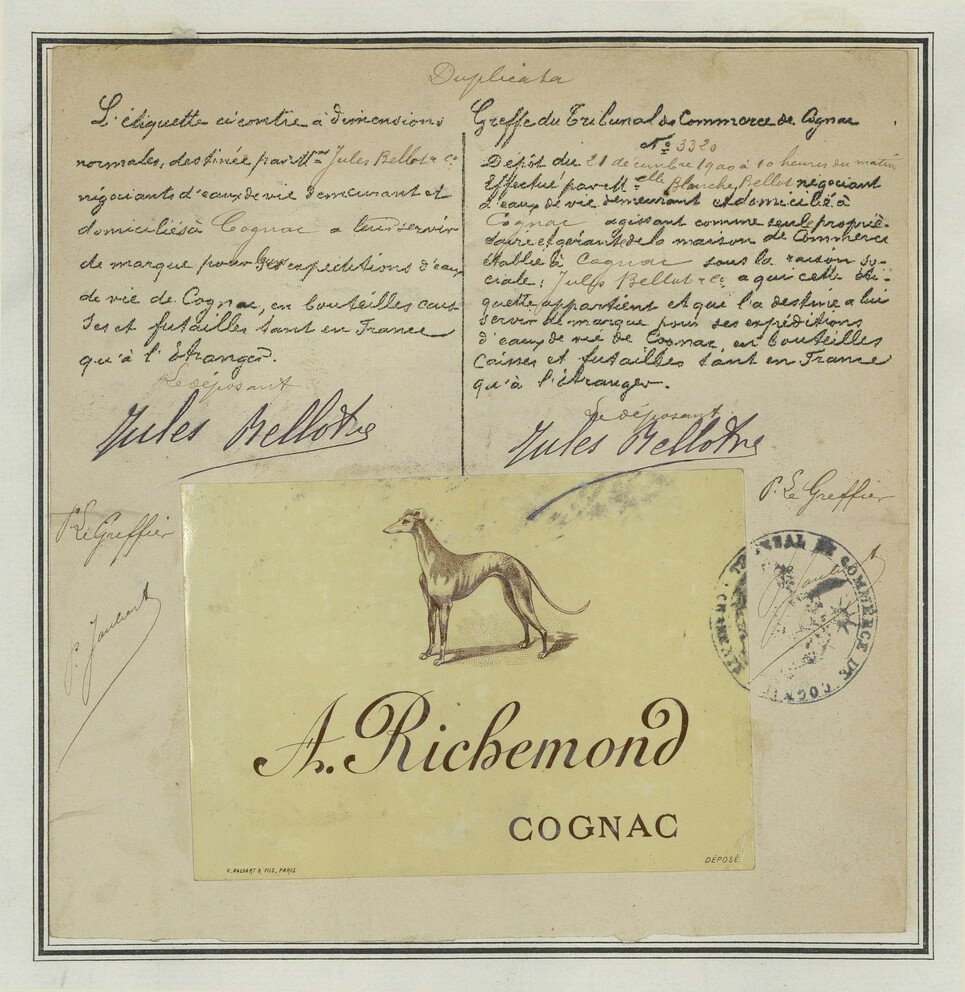 Duplicata
L'étiquette ci contre à dimensions
normales, destinée par Mm Jules Bellot & Co
négociants d'eaux de vie demeurant et
domiciliés à Cognac a leur servir
de marque pour expéditions d'eaux
de vie de Cognac, en bouteilles cais-
ses et futailles tant en France
qu'à l'Etranger.
Le déposant
Jules Bellot & Co
P. Le Greffier
P. Joubert
Greffe du Tribunal de Commerce de Cognac
No 3320
Dépôt du 21 décembre 1900 à 10 heures du matin
Effectué par Melle Blanche Bellot négociant
d'eaux de vie demeurant et domicilié à
Cognac agissant comme seule proprié-
taire et gérante de la maison de Commerce
établie à Cognac sous la raison so-
ciale: Jules Bellot & Co. a qui cette éti-
quette appartient et qui l'a destine a lui
servir de marque pour ses expéditions
d'eaux de vie de Cognac, en bouteilles
Caisses et futailles tant en France
qu'à l'étranger.
Le déposant
Jules Bellot & Co
P. Le Greffier
TRIBUNAL DE COMMERCE DE COGNAC
A. Richemond
COGNAC
DÉPOSÉ
V. PALYART & FILS, PARIS